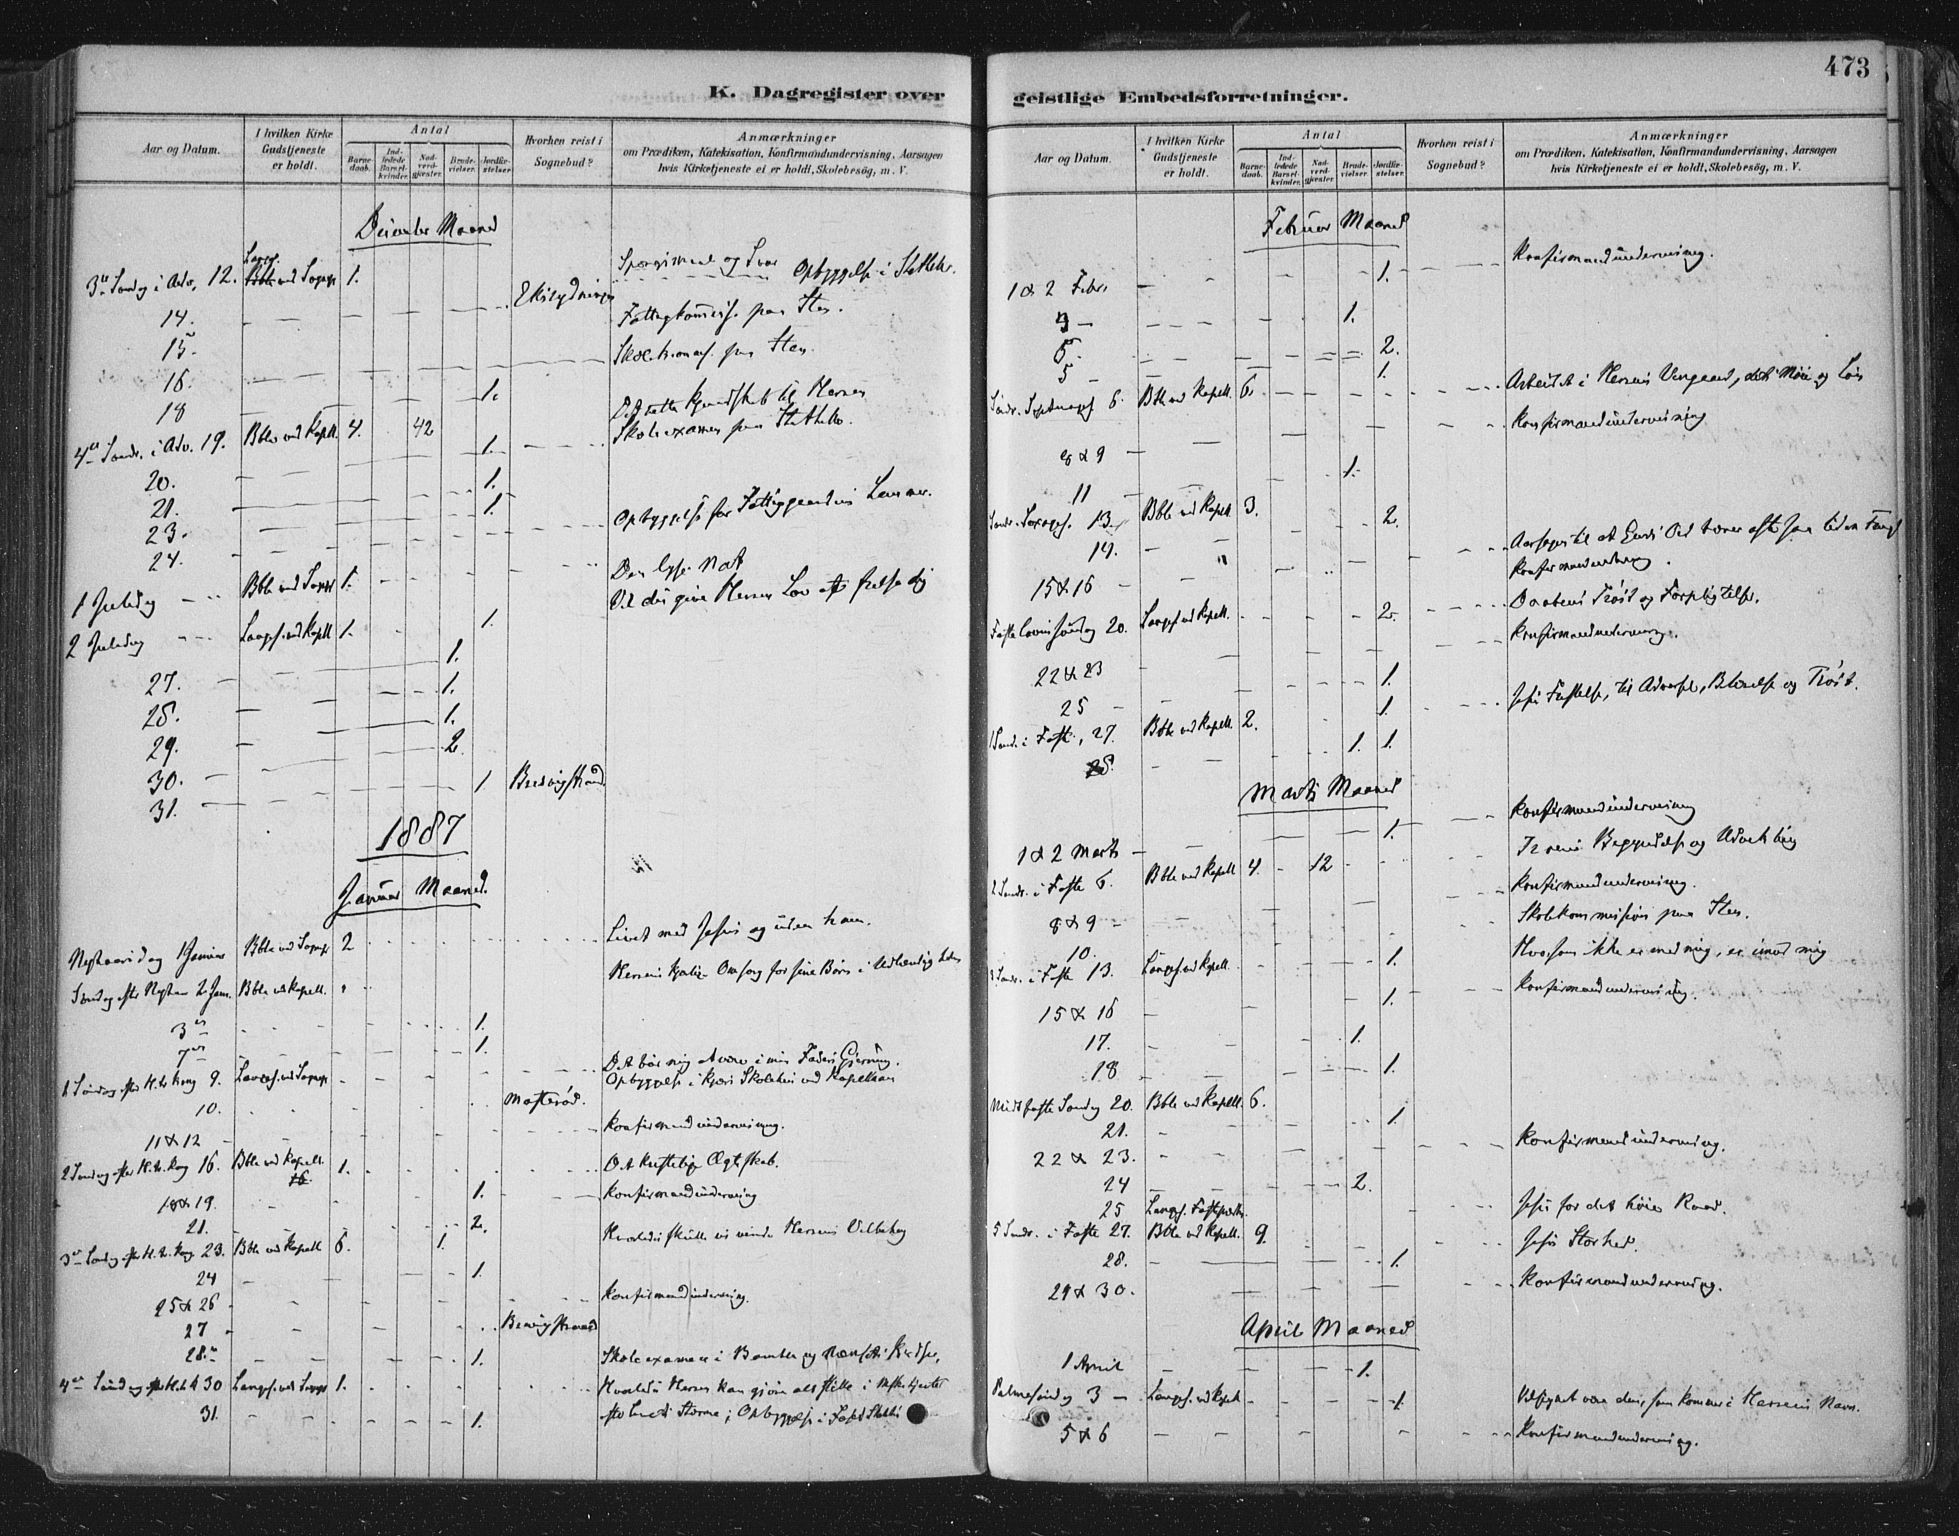 K. Dagregister over
Aar og Datum.
I hvilken Kirke Gudstjeneste er holdt.
Antal
Barnedaab.
Indledede Barselkvinder.
Nadverdgjæster.
Brudevielser.
Jordfæstelser.
Hvorhen reist i Sognebud?
Anmærkninger
om Prædiken, Katekisation, Konfirmandundervisning, Aarsagen
hvis Kirketjeneste ei er holdt, Skolebesög, m. V.
December Maaned
3die Sondag i Adv. 12. 1. Spørgsmaal og Svar Opbyggelse i Stathelle.
14. Eksisydningen Fattigkommiss. paa Sten.
15. Skolekommis. paa Sten.
16. 1.
18 Det rette Kjendskab til Herren
4de Sønd. i Adv. 19. Bble ved Kapell. 4. 42 1. Skoleexamen paa Stathelle.
20. 1.
21. 1.
23. Opbyggelse for Fattiggaardens Lemmer.
24.
1 Juledag Bble ved Sognepr 1. Den lyse Nat
2 Juledag Langs. ved Kapell 1. 1.
27. 1.
28. 1.
29. 1.
30. 2.
31. 1 Brevigstrand
1887
Januar Maaned.
Nytaarsdag 1 Januar Bble ved Sognepr 2 Livet med Jesus og uden ham.
Søndag efter Nytaar 2 Jan. Bble ved Kapell.
3de 1.
7de 1.
1 Søndag efter H. tr. Kong. 9. Langs. ved Sognepr Det bør mig at være i min Faders Gjerning.
10. Opbyggelse i Kjærs Skolehus ved Kapellan
11 & 12 Konfirmandundervisning.
2 Søndag efter H. tr. Kong 16. Bble ved Kapell. 1. Det kristelige Ægteskab.
18 & 19. 1. Konfirmandundervisning
21. 2.
3die Søndag efter H. tr. Kong 23. Bble ved Kapell 6. 1. Hvorledes skulle vi vinde Herrens Velbehag
24 1.
25 & 26 Konfirmandundervisning.
27 Brevigstrand
28. 1.
4de Søndag efter H. tr. K 30 Langs. ved Sognepr 1.
31. 1.
473
geistlige Embedsforretninger.
Aar og Datum.
I hvilken Kirke Gudstjeneste er holdt.
Antal
Barnedaab.
Indledede Barselkvinder.
Nadverdgjæster.
Brudevielser.
Jordfæstelser.
Hvorhen reist i Sognebud?
Anmærkninger
om Prædiken, Katekisation, Konfirmandundervisning, Aarsagen
hvis Kirketjeneste ei er holdt, Skolebesög, m. V.
Februar Maaned
1 & 2 Febr 1. Konfirmandundervisning.
4 1.
5. 2.
5 1.
Sønd. Septuages 6. Bble ved Kapell. 6. Arbeidet i Herrens Vingaard, dets Møie og Løn
8 & 9 Konfirmandundervisning
11 1.
Sønd. Sexages. 13. Bble ved Kapell 3. 2.
14.
15 & 16 Konfirmandunderv.
Fastelavns Søndag 20. Langs. ved Kapell. 2. Daabens Trøst og Forpligtelse.
22 & 23 Konfirmandunderv.
25 1.
1 Sønd. i Faste, 27. Bble ved Kapell. 2. 1. Jesu Fristelse, til Advarsel, Belærelse og Trøst.
28. 1. 1.
Marts Maaned
1 & 2 Marts 1. Konfirmandundervisning
2 Sønd. i Faste 6. Bble ved Kapell 4. 12 Troens Begyndelse og Udvikling
8 & 9 Konfirmandundervisning.
10. Skolekommission paa Sten.
3 Sønd. i Faste 13. Langs. ved Kapell. 1. Hvo som ikke er med mig, er imod mig
15 & 16 1. Konfirmandundervisning.
17. 1.
18 1.
Midfaste Søndag 20. Bble ved Kapell. 6.
21. 1.
22 & 23. Konfirmandundervisning.
24 2.
25 Langs. Fasteprædik. Jesus for det høie Raad.
5 Sønd. i Faste 27. Bble ved Kapell. 9. Jesu Storhed.
28. 1.
29 & 30. Konfirmandundervisng.
April Maaned
1 April 1.
Palmesøndag 3 Langs. ved Kapell 1. Velsignet være den, som kommer i Herrens Navn.
5 & 6 Konfirmandundervisning.